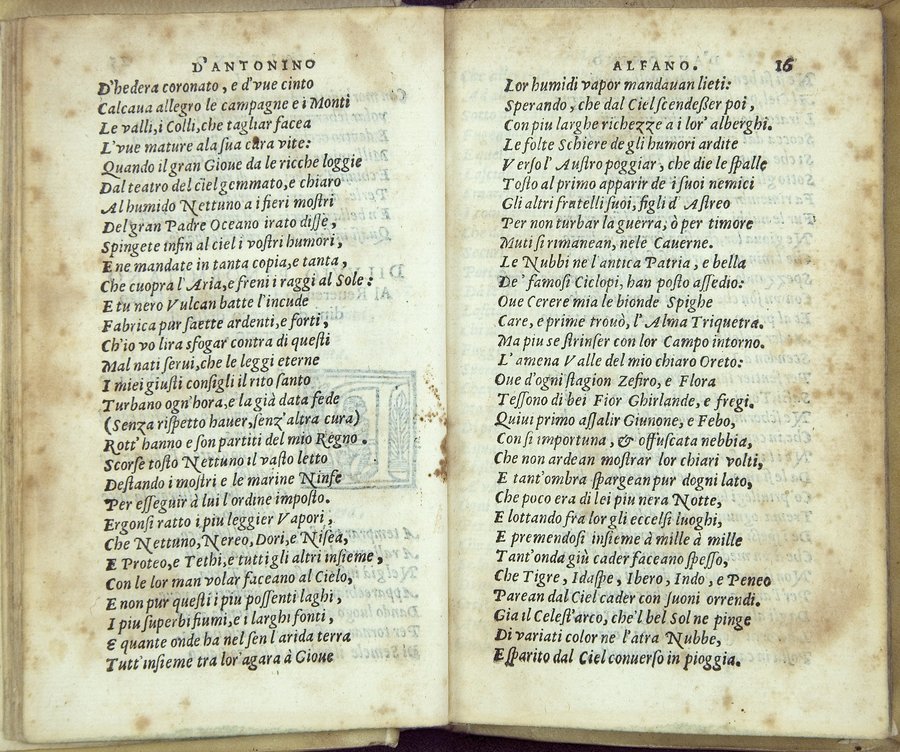 D'ANTONINO
D'hedera coronato, e d'vue cinto
Calcaua allegro le campagne e i Monti
Le valli, i Colli, che tagliar facea
L'vue mature ala sua cara vite:
Quando il gran Gioue da le ricche loggie
Dal teatro del ciel gemmato, e chiaro
Al humido Nettuno a i fieri mostri
Del gran Padre Oceano irato disse,
Spingete infin al ciel i vostri humori,
E ne mandate in tanta copia, e tanta,
Che cuopra l'Aria, e freni i raggi al Sole:
E tu nero Vulcan batte l'incude
Fabrica pur saette ardenti, e forti,
Ch'io vo lira sfogar contra di questi
Mal nati serui, che le leggi eterne
I miei giusti consigli il rito santo
Turbano ogn'hora, e la già data fede
(Senza rispetto hauer, senz'altra cura)
Rott'hanno e son partiti del mio Regno.
Scorse tosto Nettuno il vasto letto
Destando i mostri e le marine Ninfe
Per esseguir à lui l'ordine imposto.
Ergonsi ratto i piu leggier Vapori,
Che Nettuno, Nereo, Dori, e Nisea,
E Proteo, e Tethi, e tutti gli altri insieme,
Con le lor man volar faceano al Cielo,
E non pur questi i piu possenti laghi,
I piu superbi fiumi, e i larghi fonti,
E quante onde ha nel sen l'arida terra
Tutt'insieme tra lor'agara à Gioue
ALFANO. 16
Lor humidi vapor mandauan lieti:
Sperando, che dal Ciel scendesser poi,
Con piu larghe richezze a i lor' alberghi.
Le folte Schiere de gli humori ardite
Verso l'Austro poggiar, che die le spalle
Tosto al primo apparir de i suoi nemici
Gli altri fratelli suoi, figli d'Astreo
Per non turbar la guerra, ò per timore
Muti si rimanean, nele Cauerne.
Le Nubbi ne l'antica Patria, e bella
De' famosi Ciclopi, han posto assedio:
Oue Cerere mia le bionde Spighe
Care, e prime trouò, l'Alma Triquetra.
Ma piu se strinser con lor Campo intorno.
L'amena Valle del mio chiaro Oreto:
Oue d'ogni stagion Zefiro, e Flora
Tessono di bei Fior Ghirlande, e fregi.
Quiui primo assalir Giunone, e Febo,
Con si importuna, & offuscata nebbia,
Che non ardean mostrar lor chiari volti,
E tant'ombra spargean pur dogni lato,
Che poco era di lei piu nera Notte,
E lottando fra lor gli eccelsi luoghi,
E premendosi insieme à mille à mille
Tant'onda giù cader faceano spesso,
Che Tigre, Idaspe, Ibero, Indo, e Peneo
Parean dal Ciel cader con suoni orrendi.
Gia il Celest'arco, che'l bel Sol ne pinge
Di variati color ne l'atra Nubbe,
E sparito dal Ciel conuerso in pioggia.